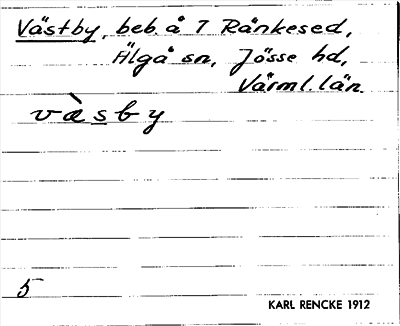 Västby, beb. å 7 Rånkesed,
Älgå sn, Jösse hd,
Värml. län
vàsby
5
KARL RENCKE 1912